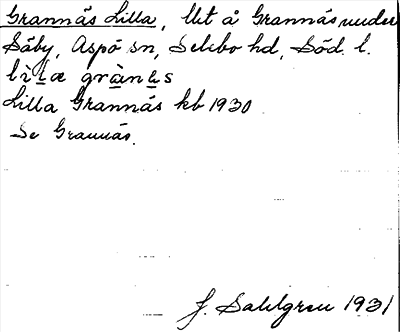 Grannäs Lilla, Ut å Grannäs under
Säby, Aspö sn, Selebo hd, Söd. l.
lìlæ grànɛs
Lilla Grannäs kb 1930
Se Grannäs.
J. Sahlgren 1931